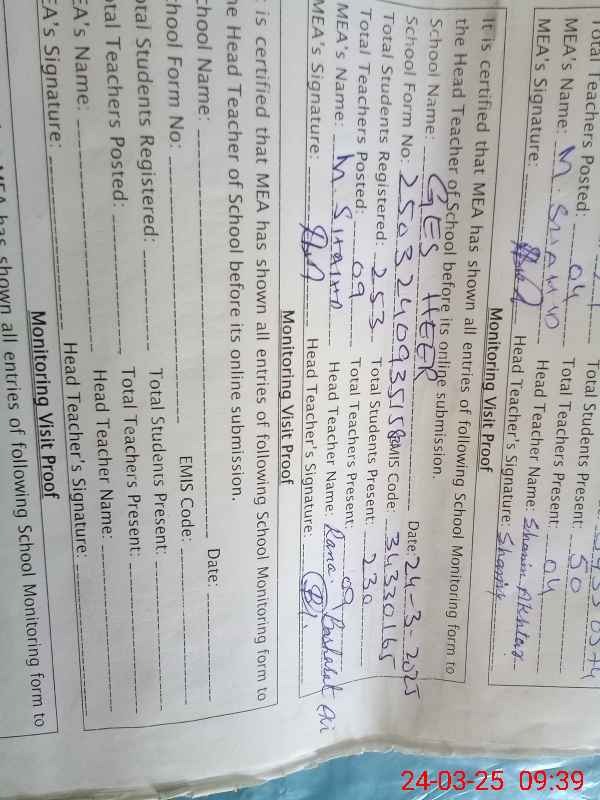 Total Teachers Posted: 04 Total Students Present: 50
MEA's Name: M. SHAMID Total Teachers Present: 04
MEA's Signature: Head Teacher Name: Shamim Akhtar
Head Teacher's Signature: Shamim
Monitoring Visit Proof
It is certified that MEA has shown all entries of following School Monitoring form to
the Head Teacher of School before its online submission.
School Name: GES HEER Date: 24-3-2025
School Form No: 25032409351582 EMIS Code: 34330165
Total Students Registered: 253 Total Students Present: 230
Total Teachers Posted: 09 Total Teachers Present: 09
MEA's Name: M. Head Teacher Name: Rana Basharat Ali
MEA's Signature: Head Teacher's Signature:
Monitoring Visit Proof
is certified that MEA has shown all entries of following School Monitoring form to
he Head Teacher of School before its online submission.
chool Name: Date:
chool Form No: EMIS Code:
otal Students Registered: Total Students Present:
otal Teachers Posted: Total Teachers Present:
EA's Name: Head Teacher Name:
EA's Signature: Head Teacher's Signature:
Monitoring Visit Proof
MEA has shown all entries of following School Monitoring form to
24-03-25 09:39